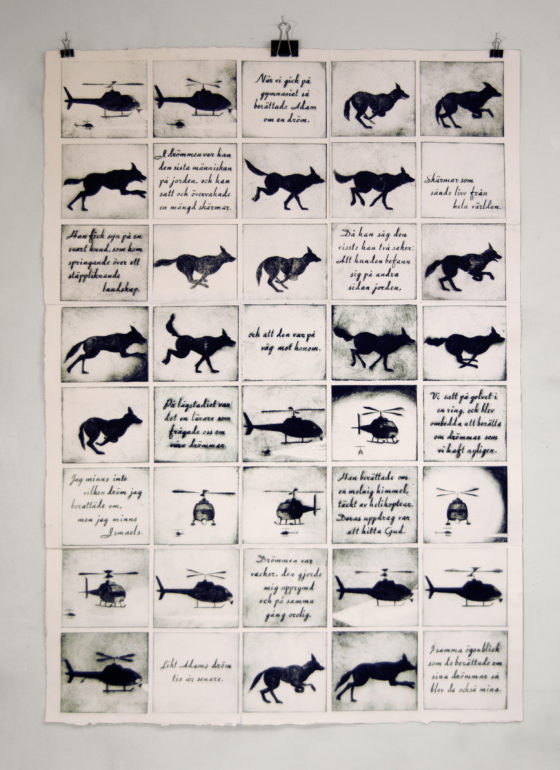 När vi gick på
gymnasiet så
berättade Adam
om en dröm.
I drömmen var han
den sista människan
på jorden, och han
satt och övervakade
en mängd skärmar.
Skärmar som
sände live från
hela världen.
Han fick syn på en
svart hund, som kom
springande över ett
stäppliknande
landskap.
Då han såg den
visste han två saker:
Att hunden befann
sig på andra
sidan jorden,
och att den var på
väg mot honom.
På lågstadiet var
det en lärare som
frågade oss om
våra drömmar.
Vi satt på golvet i
en ring, och blev
ombedda att berätta
om drömmar som
vi haft nyligen.
Jag minns inte
vilken dröm jag
berättade om,
men jag minns
Ismaels.
Han berättade om
en molnig himmel,
täckt av helikoptrar.
Deras uppdrag var
att hitta Gud.
Drömmen var
vacker, den gjorde
mig upprymd
och på samma
gång orolig.
Likt Adams dröm
tio år senare.
I samma ögonblick
som de berättade om
sina drömmar så
blev de också mina.